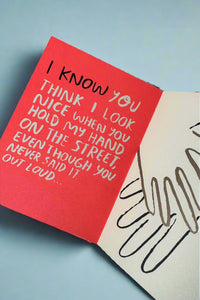 I KNOW YOU
THINK I LOOK
NICE WHEN YOU
HOLD MY HAND
ON THE STREET,
EVEN THOUGH YOU
NEVER SAID IT
OUT LOUD...